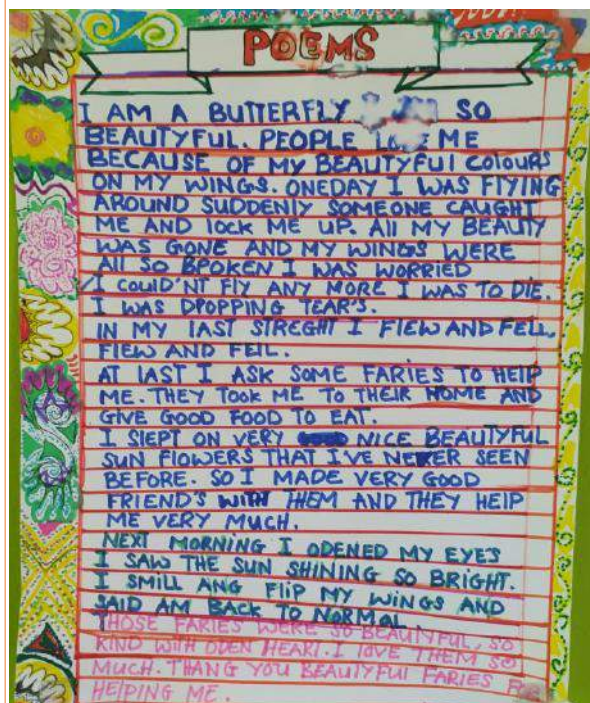 POEMS
I AM A BUTTERFLY SO
BEAUTYFUL. PEOPLE ME
BECAUSE OF MY BEAUTYFUl COlOURS
ON MY WINGS. ONEDAY I WAS FlYING
AROUND SUDDENLY SOMEONE CAUGHT
ME AND lOCK ME UP. All MY BEAUTY
WAS GONE AND MY WINGS WERE
All SO BROKEN I WAS WORRIED
I COUlD'NT FlY ANY MORE I WAS TO DIE.
I WAS DPOPPING TEAR'S.
IN MY lAST STREGHT I FlEW AND FEll,
FlEW AND FEIL.
AT lAST I ASK SOME FARIES TO HElP
ME. THEY TOOK ME TO THEIR HOME AND
GIVE GOOD FOOD TO EAT.
I SlEPT ON VERY NICE BEAUTYFUL
SUN FlOWERS THAT I'VE NEVER SEEN
BEFORE. SO I MADE VERY GOOD
FRIEND'S WITH THEM AND THEY HElP
ME VERY MUCH.
NEXT MORNING I ODENED MY EYES
I SAW THE SUN SHINING SO BRIGHT.
I SMILL ANG FlIP MY WINGS AND
SAID AM BACK TO NORMAL.
THOSE FARIES WERE SO BEAUTYFUL, SO
KIND WITH ODEN HEART. I lOVE THEM SO
MUCH. THANG YOU BEAUTYFUl FARIES FOR
HElPING ME.